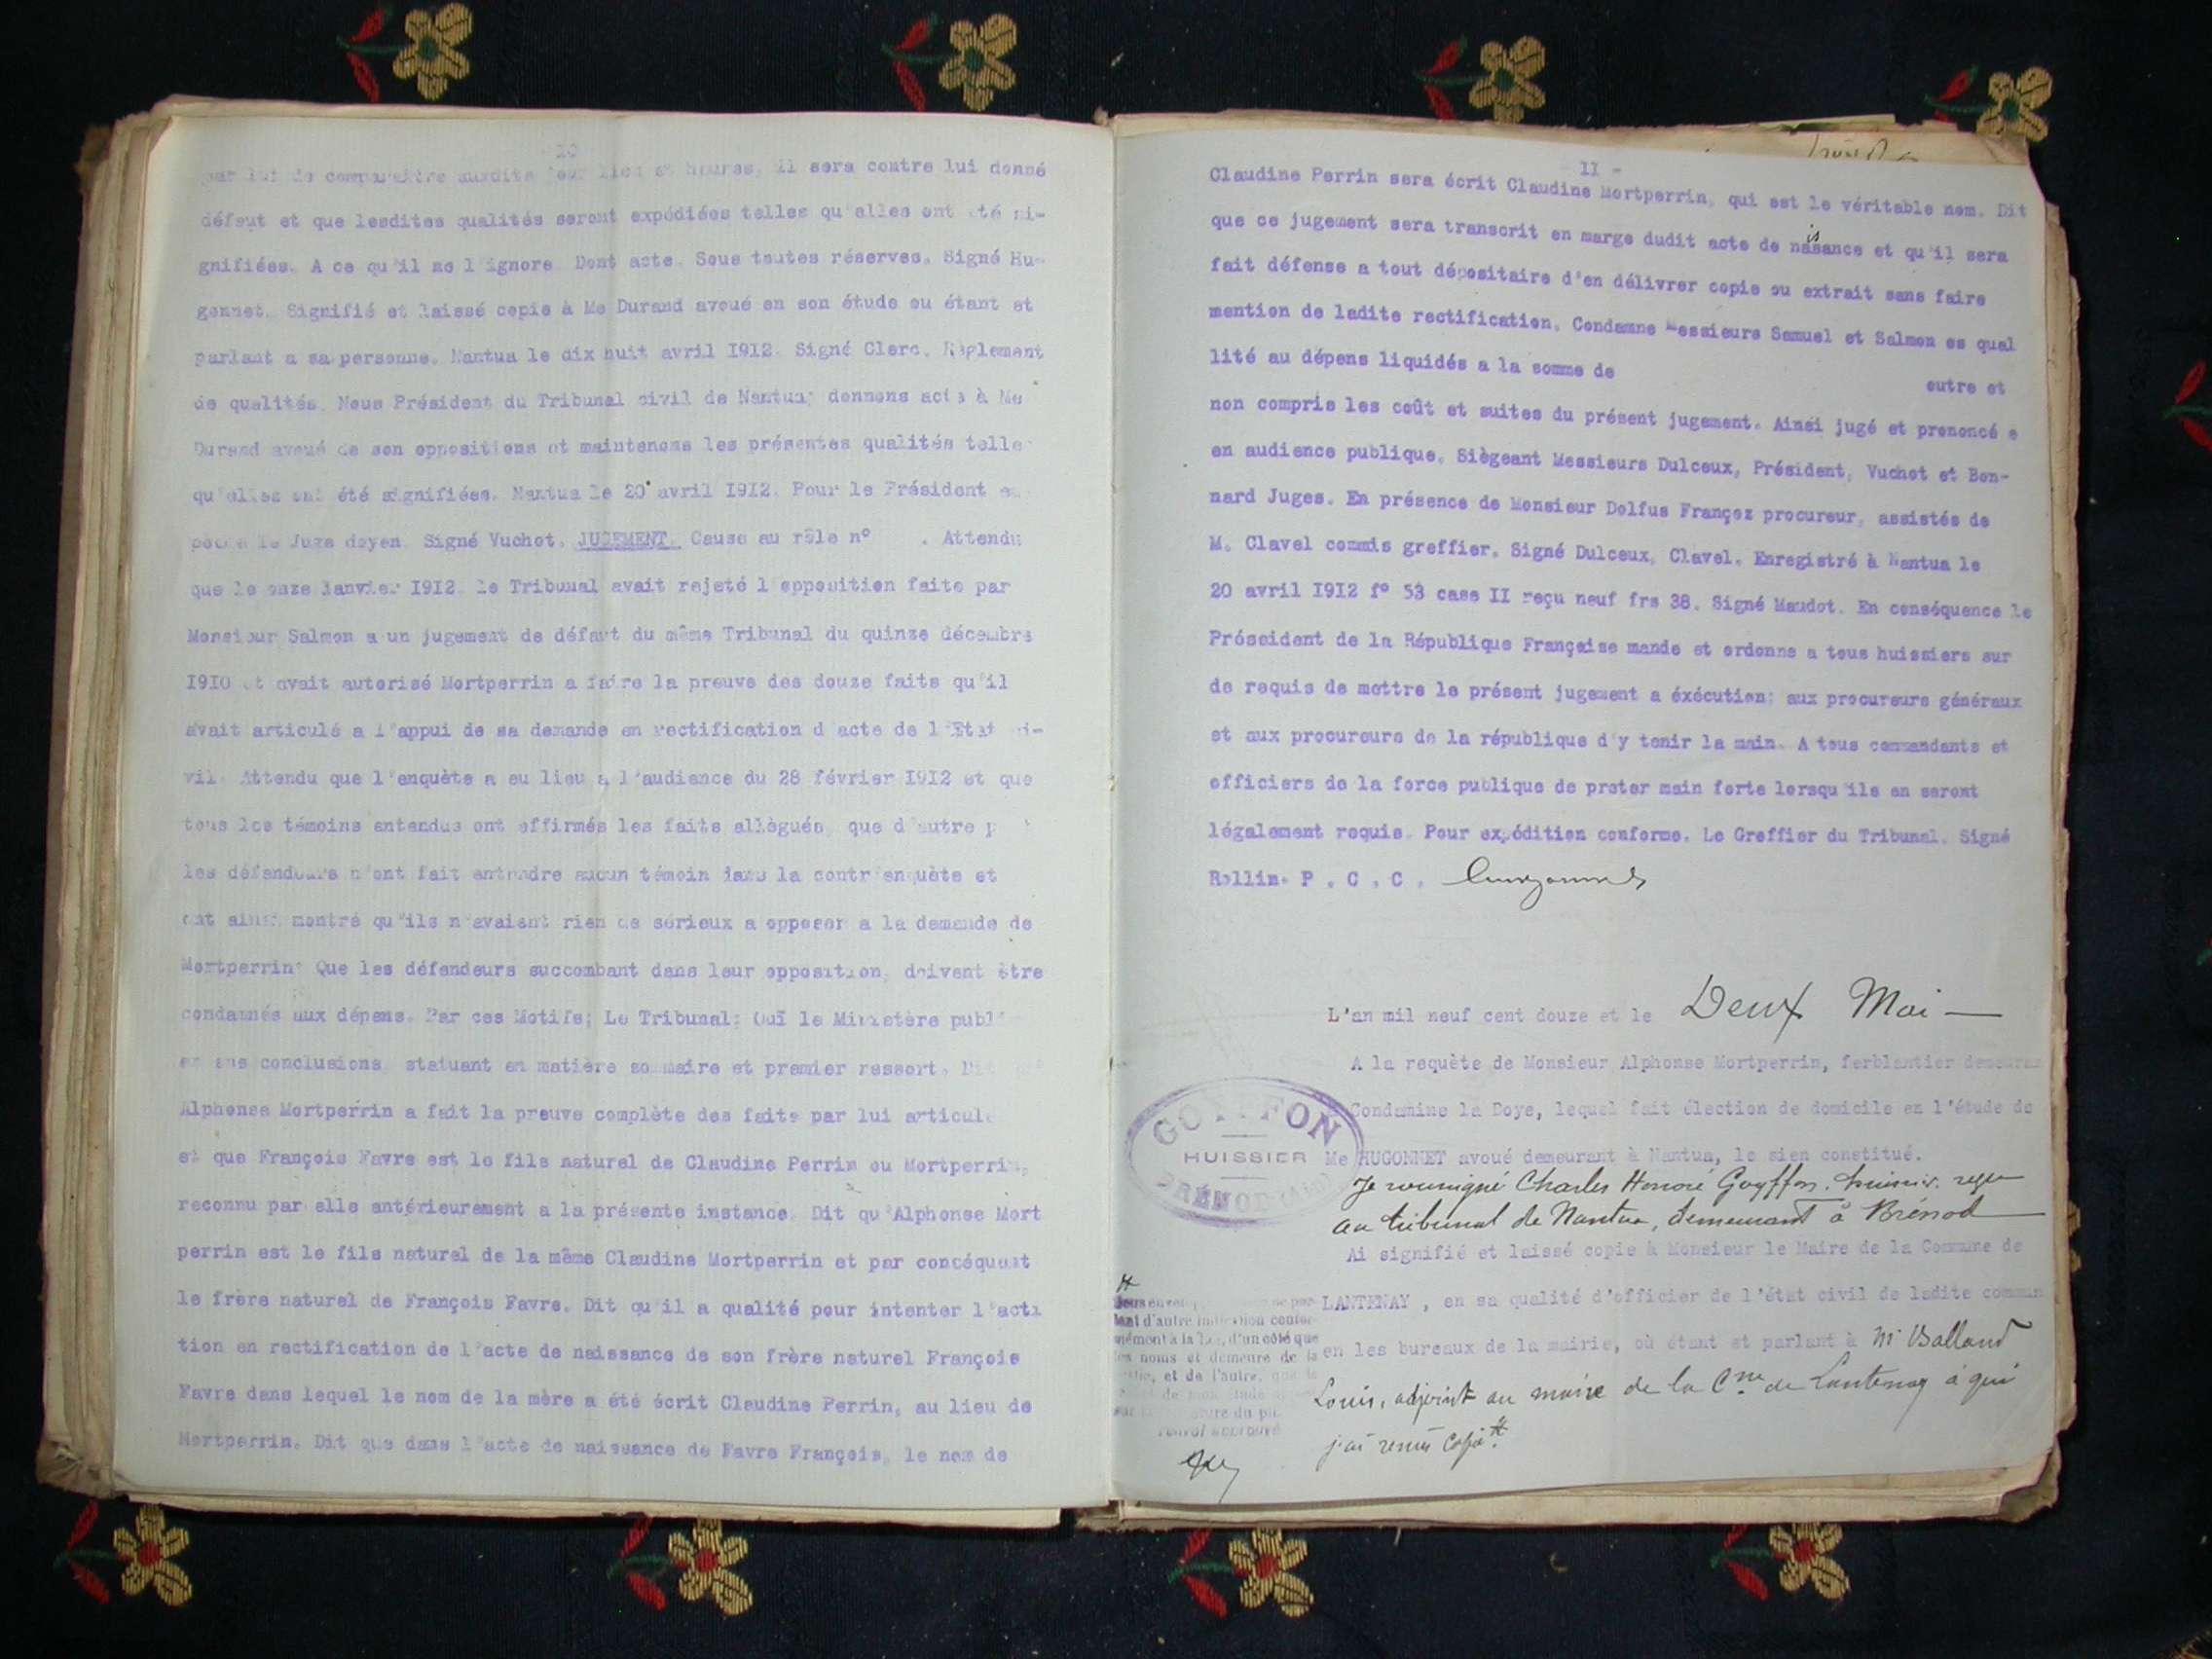 10
par lui de comparaître auxdits jour lieu et heures, il sera contre lui donné
défaut et que lesdites qualités seront expédiées telles qu'elles ont été si-
gnifiées. A ce qu'il ne l'ignore. Dont acte. Sous toutes réserves. Signé Hu-
gonnet. Signifié et laissé copie à Me Durand avoué en son étude ou étant et
parlant a sa personne. Nantua le dix huit avril 1912. Signé Clerc. Règlement
de qualités. Nous Président du Tribunal civil de Nantua; donnons acte à Me
Durand avoué de son oppositions et maintenons les présentes qualités telle
qu'elles ont été signifiées. Nantua le 20 avril 1912. Pour le Président
le Juge doyen. Signé Vuchot. JUGEMENT. Cause au rôle n° . Attendu
que le onze Janvier 1912 le Tribunal avait rejeté l'opposition faite par
Monsieur Salmon a un jugement de défaut du même Tribunal du quinze décembre
1910 et avait autorisé Mortperrin a faire la preuve des douze faits qu'il
avait articulé a l'appui de sa demande en rectification d'acte de l'Etat ci-
vil. Attendu que l'enquète a eu lieu a l'audience du 28 février 1912 et que
tous les témoins entendus ont affirmés les faits allègués, que d'autre p
les défendeurs n'ont fait entendre aucun témoin dans la contr'enquète et
ont ainsi montré qu'ils n'avaient rien de sérieux a opposer a la demande de
Mortperrin. Que les défendeurs succombant dans leur opposition, doivent être
condamnés aux dépens. Par ces Motifs; Le Tribunal; Ouï le Ministère publi
en ses conclusions, statuant en matière sommaire et premier ressort. Dit
Alphonse Mortperrin a fait la preuve complète des faits par lui articulé
et que François Favre est le fils naturel de Claudine Perrin ou Mortperrin,
reconnu par elle antérieurement a la présente instance. Dit qu'Alphonse Mort
perrin est le fils naturel de la même Claudine Mortperrin et par concéquent
le frère naturel de François Favre. Dit qu'il a qualité pour intenter l'acti
tion en rectification de l'acte de naissance de son frère naturel François
Favre dans lequel le nom de la mère a été écrit Claudine Perrin, au lieu de
Mortperrin. Dit que dans l'acte de naissance de Favre François, le nom de
11 -
Claudine Perrin sera écrit Claudine Mortperrin, qui est le véritable nom. Dit
que ce jugement sera transcrit en marge dudit acte de naissance et qu'il sera
fait défense a tout dépositaire d'en délivrer copie ou extrait sans faire
mention de ladite rectification. Condamne Messieurs Samuel et Salmon es qual
lité au dépens liquidés a la somme de
outre et
non compris les coût et suites du présent jugement. Ainsi jugé et prononcé e
en audience publique. Siègeant Messieurs Dulceux, Président, Vuchot et Bon-
nard Juges. En présence de Monsieur Dolfus Françoz procureur, assistés de
M. Clavel commis greffier. Signé Dulceux, Clavel. Enregistré à Nantua le
20 avril 1912 f° 53 case II reçu neuf frs 38. Signé Maudot. En conséquence le
Présсident de la République Française mande et ordonne a tous huissiers sur
de requis de mettre le présent jugement a éxécution; aux procureurs généraux
et aux procureurs de la république d'y tenir la main. A tous commandants et
officiers de la force publique de preter main forte lorsqu'ils en seront
légalement requis. Pour expédition conforme. Le Greffier du Tribunal. Signé
Rollin. P . C . C .
L'an mil neuf cent douze et le Deux Mai —
A la requète de Monsieur Alphonse Mortperrin, ferblantier demeuran
Condamine la Doye, lequel fait élection de domicile en l'étude de
Me HUGONNET avoué demeurant à Nantua, le sien constitué.
GOYFFON
HUISSIER
BRÉNOD (Ain)
Je soussigné Charles Honoré Goyffon, huissier reçu
au tribunal de Nantua, demeurant à Brénod
Ai signifié et laissé copie à Monsieur le Maire de la Commune de
LANTENAY , en sa qualité d'officier de l'état civil de ladite commun
en les bureaux de la mairie, où étant et parlant à Mr Balland
Louis, adjoint au maire de la Cne de Lantenay à qui
j'ai remis copie
tant d'autre indication confor-
mément à la Loi, d'un côté que
les noms et demeure de la
partie, et de l'autre, que le
de mon étude
du pli
renvoi approuvé